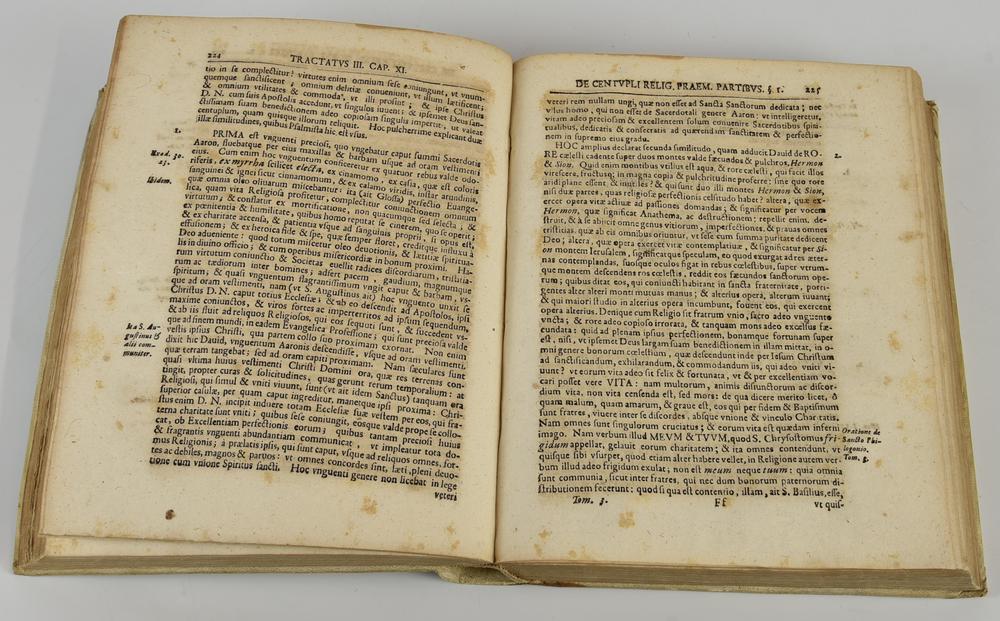 224 TRACTATVS III. CAP. XI.
tio in se complectitur? virtutes enim omnium sese coniungunt, vt vnum-
quemque sanctificent; omnium delitiæ conueniunt, vt illum lætificent;
& omnium vtilitates & commoda, vt illi prosint; & ipse Christus
D. N. cum suis Apostolis accedunt, vt singulos iuuent; & ipsemet Deus san-
ctissimam suam benedictionem adeo copiosam singulis impertit, ut valeat
centuplum, quam quisque illorum reliquit. Hoc pulcherrime explicant duæ
illæ similitudines, quibus Psalmista hic est vsus.
1.
PRIMA est vnguenti preciosi, quo vngebatur caput summi Sacerdotis
Aaron, fluebatque per eius maxillas & barbam usque ad oram vestimenti
Exod. 30.
23.
eius. Cum enim hoc vnguentum conficeretur ex quatuor rebus valde odo-
riferis, ex myrrha scilicet electa, ex cinamomo, ex casia, quæ est coloris
Ibidem.
sanguinei & igne sicut cinnamomum, & ex calamo viridis, instar arundinis,
quæ omnia oleo oliuarum miscebantur (ait Glossa) perfectio Euange-
lica, quam vita Religiosa profitetur, complectitur coniunctionem omnium
virtutum; & constatur ex mortificatione, non quacumque sed selecta, &
ex pœnitentia & humilitate, quibus homo reputat se cinerem, quo se operit;
& ex charitate accensa, & patientia vsque ad sanguinis proprii, si opus est,
effusionem; & ex heroica fide & spe, quæ semper floret, creditque instituta à
Deo adueniente: quod totum miscetur oleo deuotionis, & lætitiæ spiritua-
lis in diuino officio; & cum operibus misericordiæ in bonum proximi. Ha-
rum virtutum coniunctio & Societas euellit radices discordiarum, tristitia-
rum ac tædiorum inter homines; adfert pacem, gaudium, magnumque
spiritum, & quasi vnguentum flagrantissimum vngit caput & barbam, vs-
que ad oram vestimenti, nam (vt S. Augustinus ait) hoc vnguento vnxit se
Christus D. N. caput totius Ecclesiæ; & ab eo descendit ad Apostolos, ipsi
maxime coniunctos, & viros fortes ac imperterritos ad ipsum sequendum,
& ab iis fluit ad reliquos Religiosos, qui eos sequuti sunt, & succedent vs-
que ad finem mundi, in eadem Euangelica Professione; qui sunt preciosa valde
Ita S. Au-
gustinus &
alii com-
muniter.
vestis ipsius Christi, qua partem collo suo proximam exornat. Non enim
dixit hic Dauid, vnguentum Aaronis descendisse, vsque ad oram vestimenti,
quæ terram tangebat; sed ad oram capiti proximam. Nam sæculares sunt
quasi vltima huius vestimenti Christi Domini ora, quæ res terrenas con-
tingit, propter curas & solicitudines, quas gerunt rerum temporalium: at
Religiosi, qui simul & vniti viuunt, sunt (vt ait idem Sanctus) tanquam ora
superior casulæ, per quam caput ingreditur, manetque ipsi proxima: Chri-
stus enim D. N. incipit induere totam Ecclesiæ suæ vestem per eos, qui fra-
terna charitate sunt vniti; quibus sese coniungit, eosque valde prope se collo-
cat, ob Excellentiam perfectionis eorum; quibus tantam preciosi huius
& fragrantis vnguenti abundantiam communicat, vt impleatur tota do-
mus Religionis; à prælatis ipsis, qui sunt caput, vsque ad reliquos omnes, for-
tes ac debiles, magnos & paruos: vt omnes concordes sint, læti, pleni deuo-
tione cum vnione Spiritus sancti. Hoc vnguenti genere non licebat in lege
veteri
DE CENTVPLI RELIG. PRAEM. PARTIBVS. §. 1. 225
veteri rem nullam ungi, quæ non esset ad Sancta Sanctorum dedicata; nec
vllus homo, qui non esset de Sacerdotali genere Aaron: vt intelligeretur,
vitam adeo preciosam & excellentem solum conuenire Sacerdotibus spiri-
tualibus, dedicatis & consecratis ad quærendam sanctitatem & perfectio-
nem in supremo eius gradu.
2.
HOC amplius declarat secunda similitudo, quam adducit Dauid de RO-
RE cælesti cadente super duos montes valde fæcundos & pulchros, Hermon
& Sion. Quid enim montibus vtilius est aqua, & rore cælesti, qui facit illos
virescere, fructusque in magna copia & pulchritudine proferre: sine quo rore
aridi plane essent, & inutiles? & qui sunt duo illi montes Hermon & Sion,
nisi duæ partes, quas religiosæ perfectionis celsitudo habet? altera, quæ ex-
ercet opera vitæ actiuæ ad passiones domandas; & significatur per vocem
Hermon, quæ significat Anathema, ac destructionem: repellit enim, de-
struit, & à se abiicit omne genus vitiorum, imperfectiones, & prauas omnes
tristitias, quæ ab eis omnibus oriuntur, vt sese cum summa puritate dedicent
Deo; altera, quæ opera exercet vitæ contemplatiuæ, & significatur per Si-
on montem Ierusalem, significatque speculam, eo quod exurgat ad res æter-
nas contemplandas, suosque oculos figat in rebus cœlestibus, super vtrum-
que montem descendens ros cœlestis, reddit eos fæcundos sanctorum ope-
rum; quibus ditat eos, qui coniuncti habitant in sancta fraternitate, porri-
gentes alter alteri manus mutuas; & alterius opera, alterum iuuant;
& qui maiori studio in alterius opera incumbunt, fouent eos, qui exercent
opera alterius. Denique cum Religio sit fratrum vnio, sacro adeo vnguento
vncta; & rore adeo copioso irrorata, & tanquam mons adeo excelsus fæ-
cundata: quid ad plenam ipsius perfectionem, bonamque fortunam super
est, nisi, vt ipsemet Deus largam suam benedictionem in illam mittat, in o-
mni genere bonorum cœlestium, quæ descendunt inde per Iesum Christum
ad sanctificandum, exhilarandum, & commodandum iis, qui adeo vniti vi-
uunt? vt eorum vita adeo sit felix & fortunata, vt & per excellentiam vo-
cari posset vere VITA: nam multorum, animis disiunctorum ac discor-
dium vita, non vita censenda est, sed mors: de qua dicere merito licet, ô
quam malum, quam amarum, & graue est, eos qui per fidem & Baptismum
sunt fratres, viuere inter se discordes, absque vnione & vinculo Charitatis.
Nam omnes sunt singulorum cruciatus; & eorum vita est quædam inferni
Oratione de
Sancto Phi-
logonio.
Tom. 5.
imago. Nam verbum illud MEVM & TVVM, quod S. Chrysostomus fri-
gidum appellat, gelauit eorum charitatem; & ita omnes contendunt, vt
quisque sibi vsurpet, quod etiam alter habere vellet, in Religione autem ver-
bum illud adeo frigidum exulat; non est meum neque tuum: quia omnia
sunt communia, sicut inter fratres, qui nec dum bonorum paternorum di-
stributionem fecerunt: quod si qua est contentio, illam, ait S. Basilius, esse,
Tom. 3. Ff vt quis-